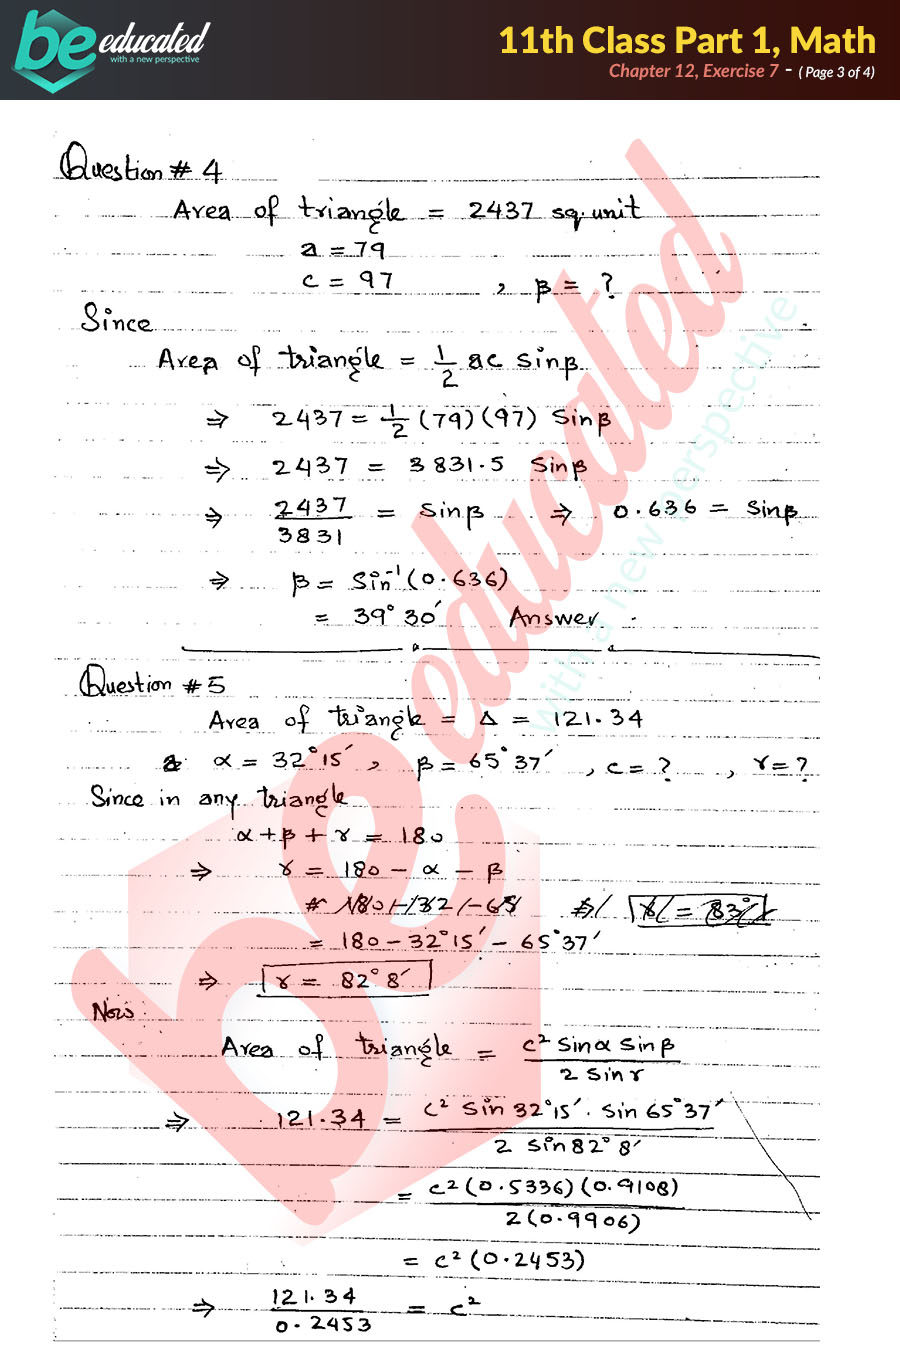 be educated
with a new perspective
11th Class Part 1, Math
Chapter 12, Exercise 7 - ( Page 3 of 4)
Question # 4
Area of triangle = 2437 sq.unit
a = 79
c = 97 , β = ?
Since
Area of triangle = 1/2 ac Sinβ
⇒ 2437 = 1/2 (79)(97) Sinβ
⇒ 2437 = 3831.5 Sinβ
⇒ 2437/3831 = Sinβ ⇒ 0.636 = Sinβ
⇒ β = Sin⁻¹(0.636)
= 39°30′ Answer
Question #5
Area of triangle = Δ = 121.34
α = 32°15′ , β = 65°37′ , c = ? , γ = ?
Since in any triangle
α + β + γ = 180
⇒ γ = 180 - α - β
= 180 - 32°15′ - 65°37′
⇒ γ = 82°8′
Now
Area of triangle = c² Sinα Sinβ / 2 Sinγ
⇒ 121.34 = c² Sin 32°15′ . Sin 65°37′ / 2 Sin 82°8′
= c²(0.5336)(0.9108) / 2(0.9906)
= c²(0.2453)
⇒ 121.34/0.2453 = c²
be educated
with a new perspective